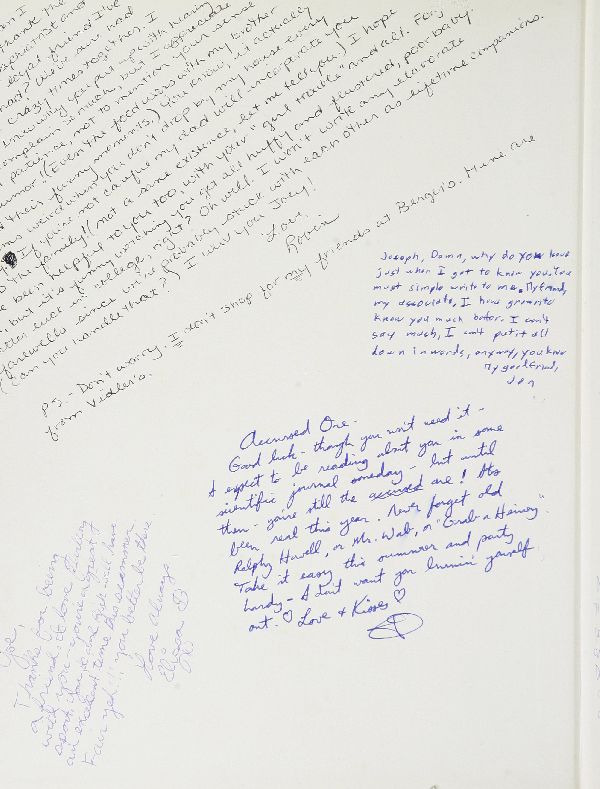 thank the
loyal friend I've
had? We've sure had
crazy times together. I
know why you put up with hearing
complain so much, but I appreciate
patience, not to mention your sense
humor! (Even the food wars with my brother
had their funny moments.) You know, it actually
weird when you don't drop by my house every
If you're not careful my dad will incorporate you
the family! (not a sane existence, let me tell you) I hope
been helpful to you too, with your "girl trouble" and all. For
but it's funny watching you get all huffy and flustered, poor baby
luck in college, right? Oh well. I won't write any elaborate
farewells since we're probably stuck with each other as lifetime companions.
(Can you handle that?) I luv you Joey!
Love,
P.S. - Don't worry. I won't shop for my friends at Bergers. Mine are
from Vidler's.
Joseph, Damn, why do you have
just when I got to know you. You
must simple write to me. My friend,
my associate, I have grown to
know you much better. I can't
say much, I can't put it all
down in words, anyway, you know
My good friend,
Jon
Accursed One -
Good luck - though you won't need it -
I expect to be reading about you in some
scientific journal someday - but until
then - you're still the accursed one! It's
been real this year. Never forget old
Ralphy Howell, or Mr. Wab, or "Grab a Heiney".
Take it easy this summer and party
hardy - I don't want you burnin' yourself
out. ♡ Love & Kisses ♡
Joe,
Thanks for being
a friend. I love
with you - you're a
apart, you
an excellent time this summer
Fair yeh!! you better be there
Love always
Elissa